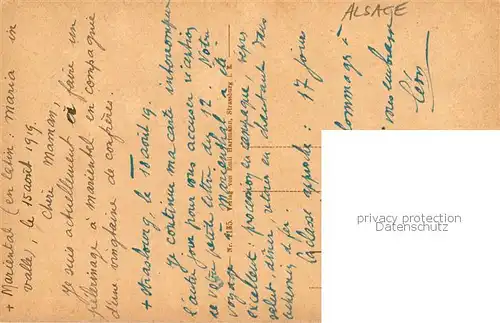 + Mariental (en latin : Maria in
valle), le 15 août 1919.
Chère Maman,
Je suis actuellement à faire un
pélerinage à Mariental en compagnie
d'une vingtaine de confrères.
+ Strasbourg, le 18 août 19.
Je continue ma carte interrompue
l'autre jour pour vous accuser réception
de votre petite lettre du 12. Notre
voyage à Mariental a été
excellent : parcours en campagne, repos
dîner, retour en
La classe approche : 17 jours
hommage à
vous embrasse
Léon
ALSACE
Nr. 4185 Verlag von Emil Hartmann, Strassburg i. E.
privacy protection
Datenschutz